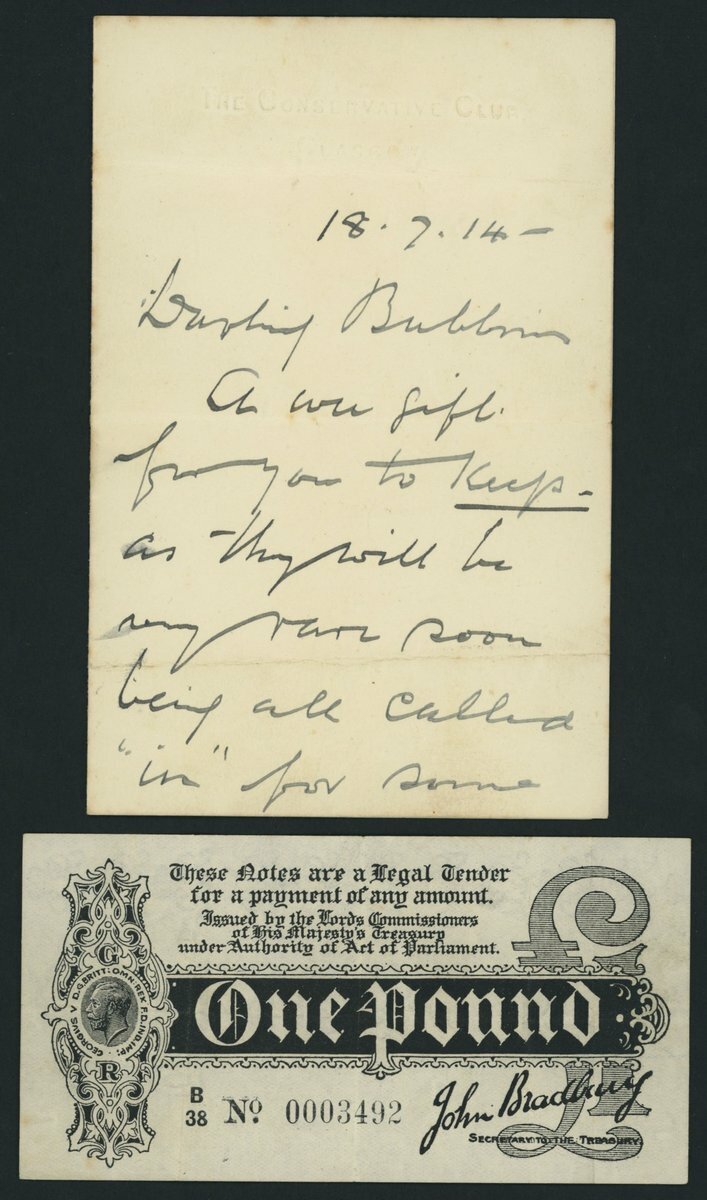 THE CONSERVATIVE CLUB
GLASGOW
18.7.14-
Darling Bubbins
A wee gift.
for you to keep -
as they will be
very rare soon
being all called
"in" for some
These Notes are a Legal Tender
for a payment of any amount.
Issued by the Lords Commissioners
of His Majesty's Treasury
under Authority of Act of Parliament.
£1
G
GEORGIUS V D.G. BRITT: OMN: REX F.D. IND: IMP:
R
One Pound
B
38 No. 0003492
John Bradbury
SECRETARY TO THE TREASURY.